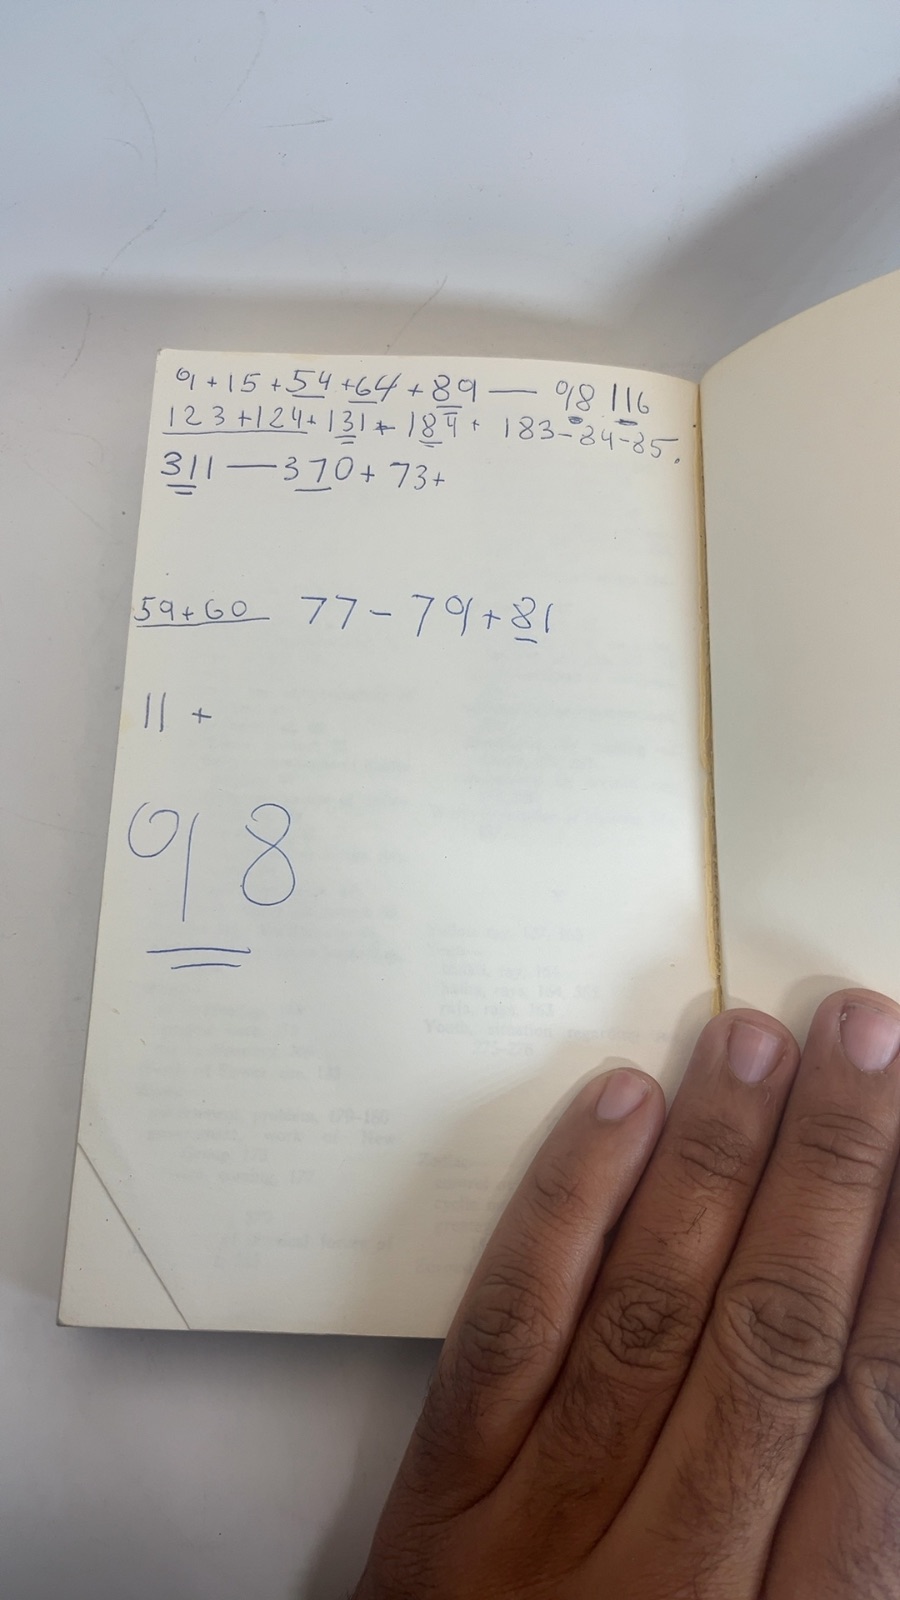 9+15+54+64+89 — 98 116
123+124+131+184+ 183-84-85.
311 — 370+73+
59+60 77-79+81
11+
98